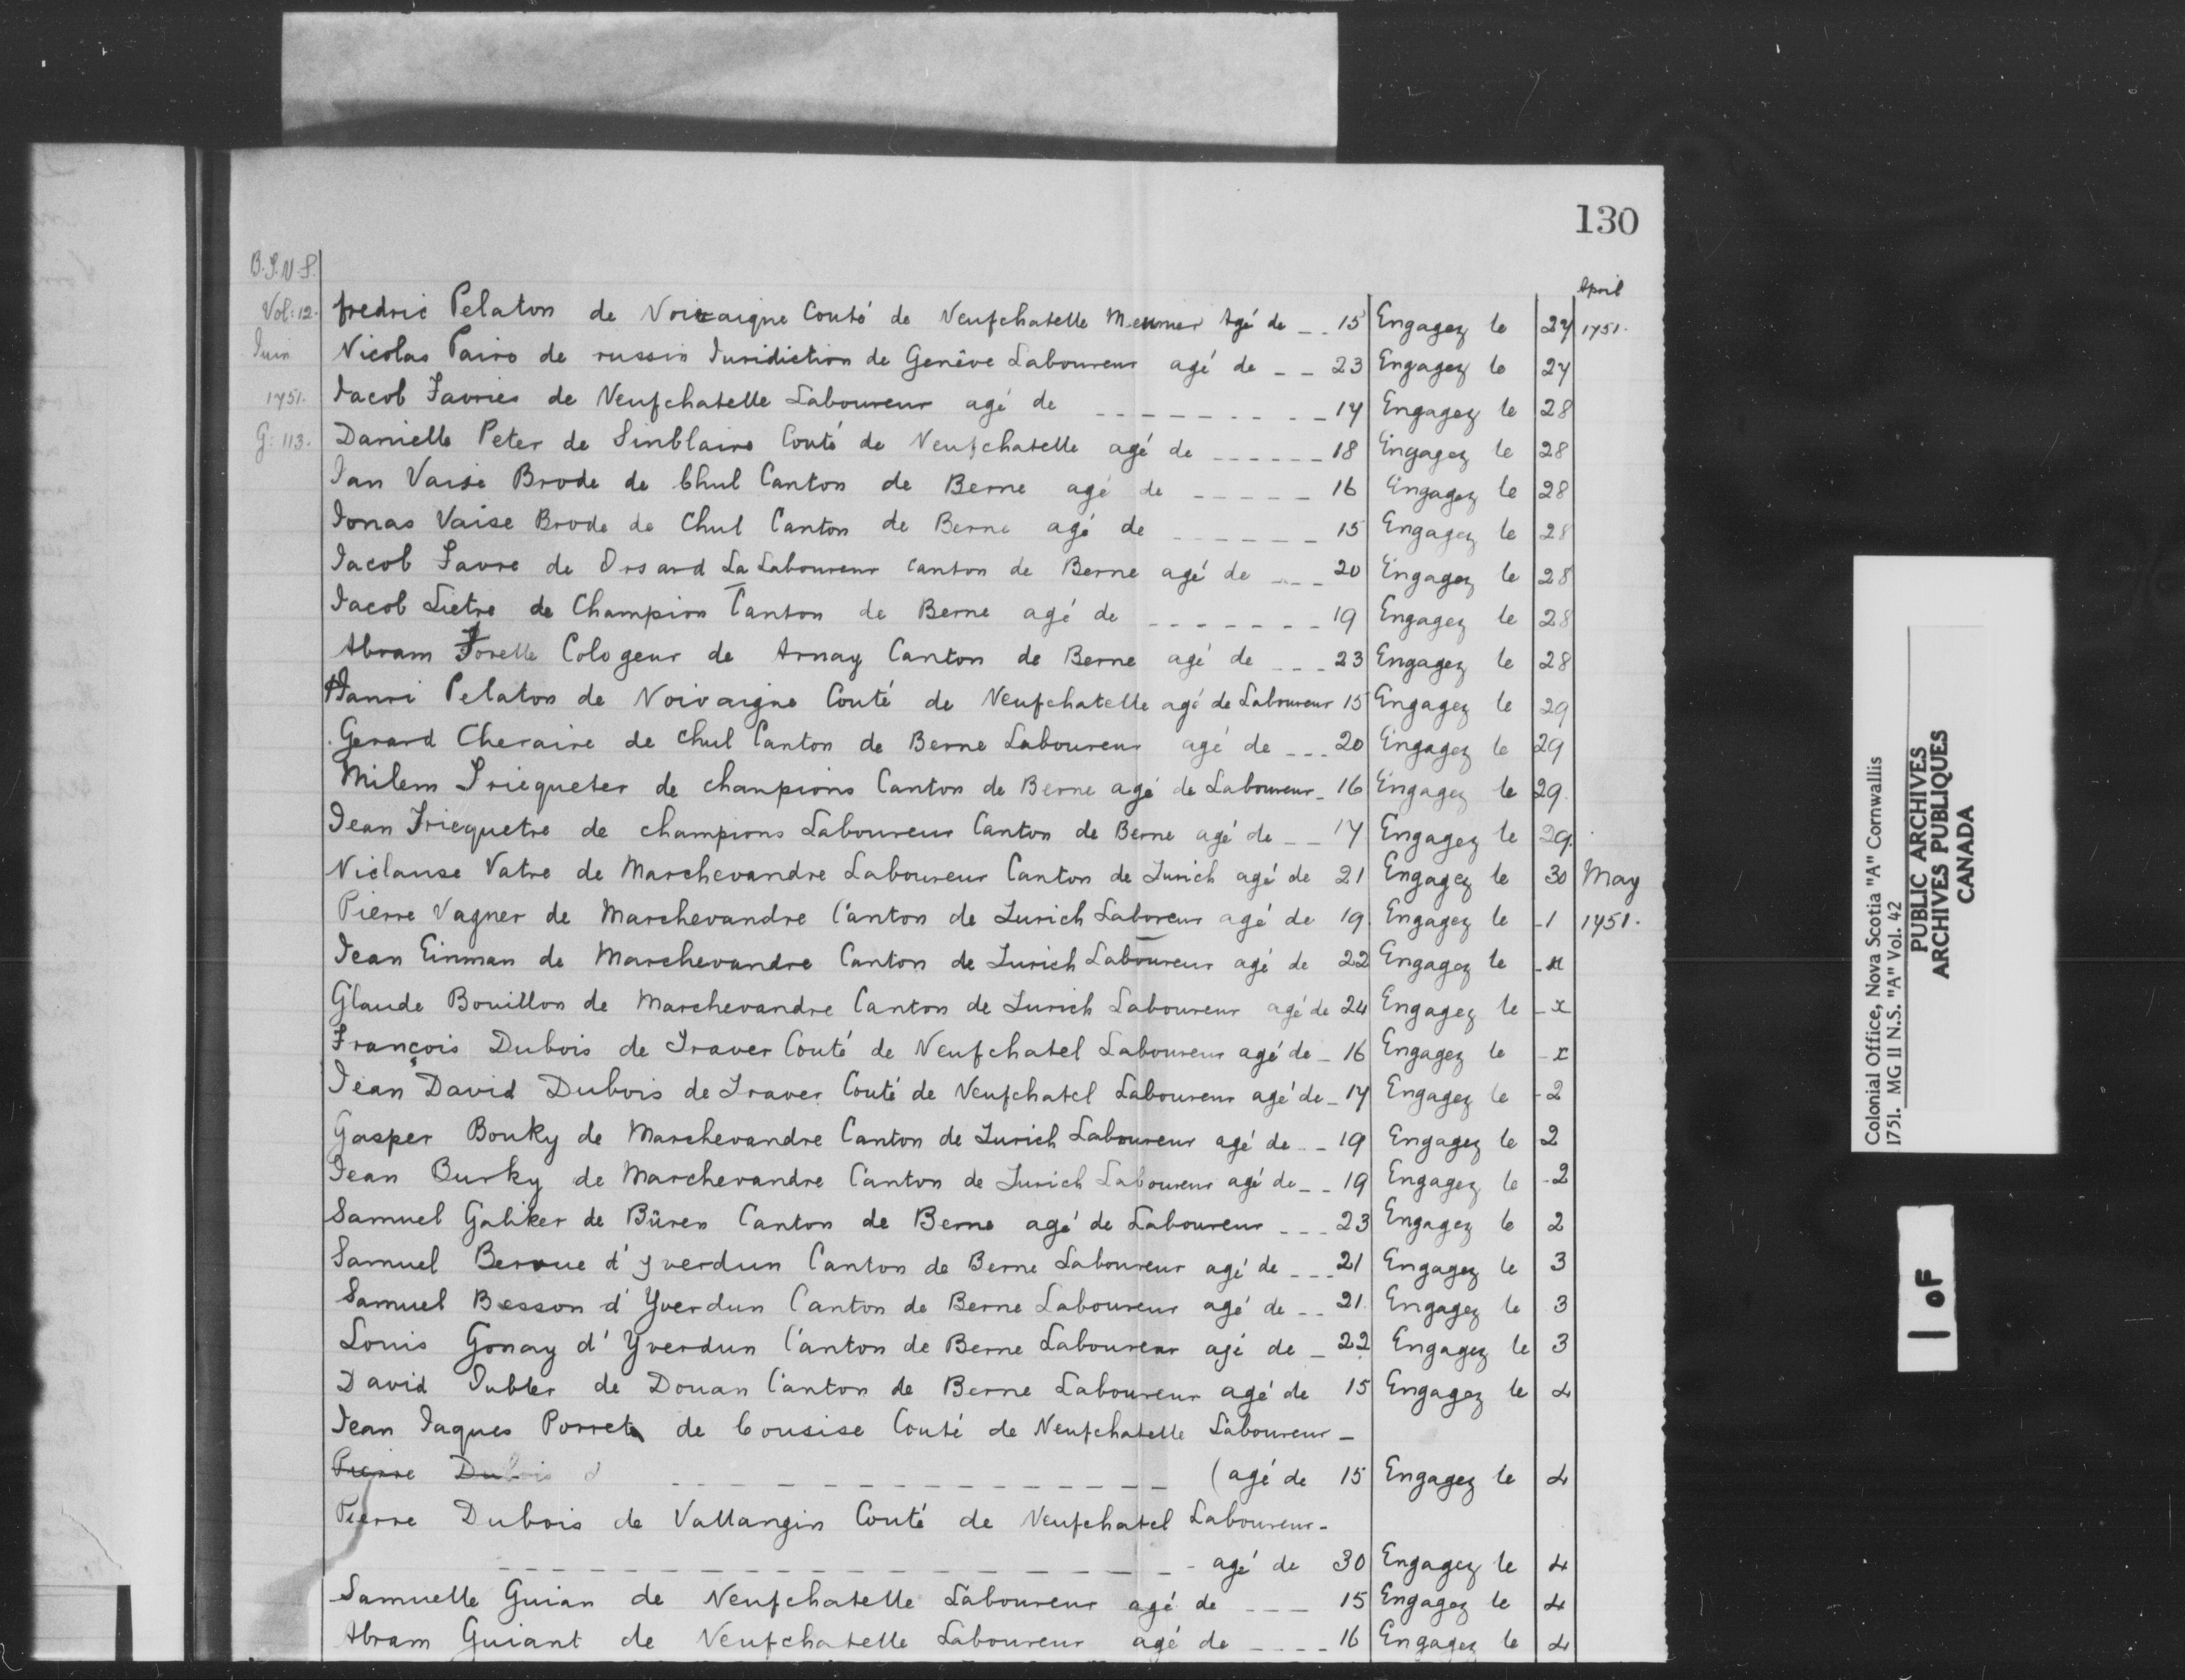 130
B.S.N.S.
April
Vol: 12. fredric Pelaton de Noizaigne Couté de Neufchatelle Meunier Agé de -- 15 Engagez le 27 1751.
Juin Nicolas Pairo de russin Juridiction de Genève Laboureur agé de -- 23 Engagez le 27
1751. Jacob Favries de Neufchatelle Laboureur agé de --------- 17 Engagez le 28
G: 113. Danielle Peter de Sinblairo Couté de Neufchatelle agé de ------ 18 Engagez le 28
Jan Vaise Brode de Chul Canton de Berne agé de ----- 16 Engagez le 28
Jonas Vaise Brode de Chul Canton de Berne agé de ------ 15 Engagez le 28
Jacob Favre de Orsard La Laboureur Canton de Berne agé de --- 20 Engagez le 28
Jacob Lietre de Champion Canton de Berne agé de ------- 19 Engagez le 28
Abram Forelle Cologeur de Arnay Canton de Berne agé de --- 23 Engagez le 28
Hanri Pelaton de Noivaigne Couté de Neufchatelle agé de Laboureur 15 Engagez le 29
Gerard Cheraire de Chul Canton de Berne Laboureur agé de --- 20 Engagez le 29
Milem Iriequeter de champions Canton de Berne agé de Laboureur - 16 Engagez le 29.
Jean Friequetre de champions Laboureur Canton de Berne agé de -- 17 Engagez le 29.
Niclause Vatre de Marchevandre Laboureur Canton de Zurich agé de 21 Engagez le 30 May
Pierre Vagner de Marchevandre Canton de Zurich Laboreur agé de 19 Engagez le -1 1751.
Jean Einman de Marchevandre Canton de Zurich Laboureur agé de 22 Engagez le -x
Glaude Bouillon de Marchevandre Canton de Zurich Laboureur agé de 24 Engagez le -x
François Dubois de Traver Couté de Neufchatel Laboureur agé de - 16 Engagez le -x
Jean David Dubois de Traver Couté de Neufchatel Laboureur agé de - 17 Engagez le -2
Gasper Bouky de Marchevandre Canton de Zurich Laboureur agé de -- 19 Engagez le 2
Jean Burky de Marchevandre Canton de Zurich Laboureur agé de -- 19 Engagez le -2
Samuel Galiker de Büren Canton de Berne agé de Laboureur --- 23 Engagez le 2
Samuel Beroue d'yverdun Canton de Berne Laboureur agé de --- 21 Engagez le 3
Samuel Besson d'Yverdun Canton de Berne Laboureur agé de -- 21. Engagez le 3
Louis Gonay d'Yverdun Canton de Berne Laboureur agé de - 22 Engagez le 3
David Jubler de Douan Canton de Berne Laboureur agé de 15 Engagez le 4
Jean Jaques Porret de Cousise Couté de Neufchatelle Laboureur -
Pierre Dubois d ---------------- (agé de 15 Engagez le 4
Pierre Dubois de Vallangin Couté de Neufchatel Laboureur -
-------------------- agé de 30 Engagez le 4
Samuelle Guian de Neufchatelle Laboureur agé de --- 15 Engagez le 4
Abram Guiant de Neufchatelle Laboureur agé de ---- 16 Engagez le 4
Colonial Office, Nova Scotia "A" Cornwallis
1751. MG 11 N.S. "A" Vol. 42
PUBLIC ARCHIVES
ARCHIVES PUBLIQUES
CANADA
1 OF